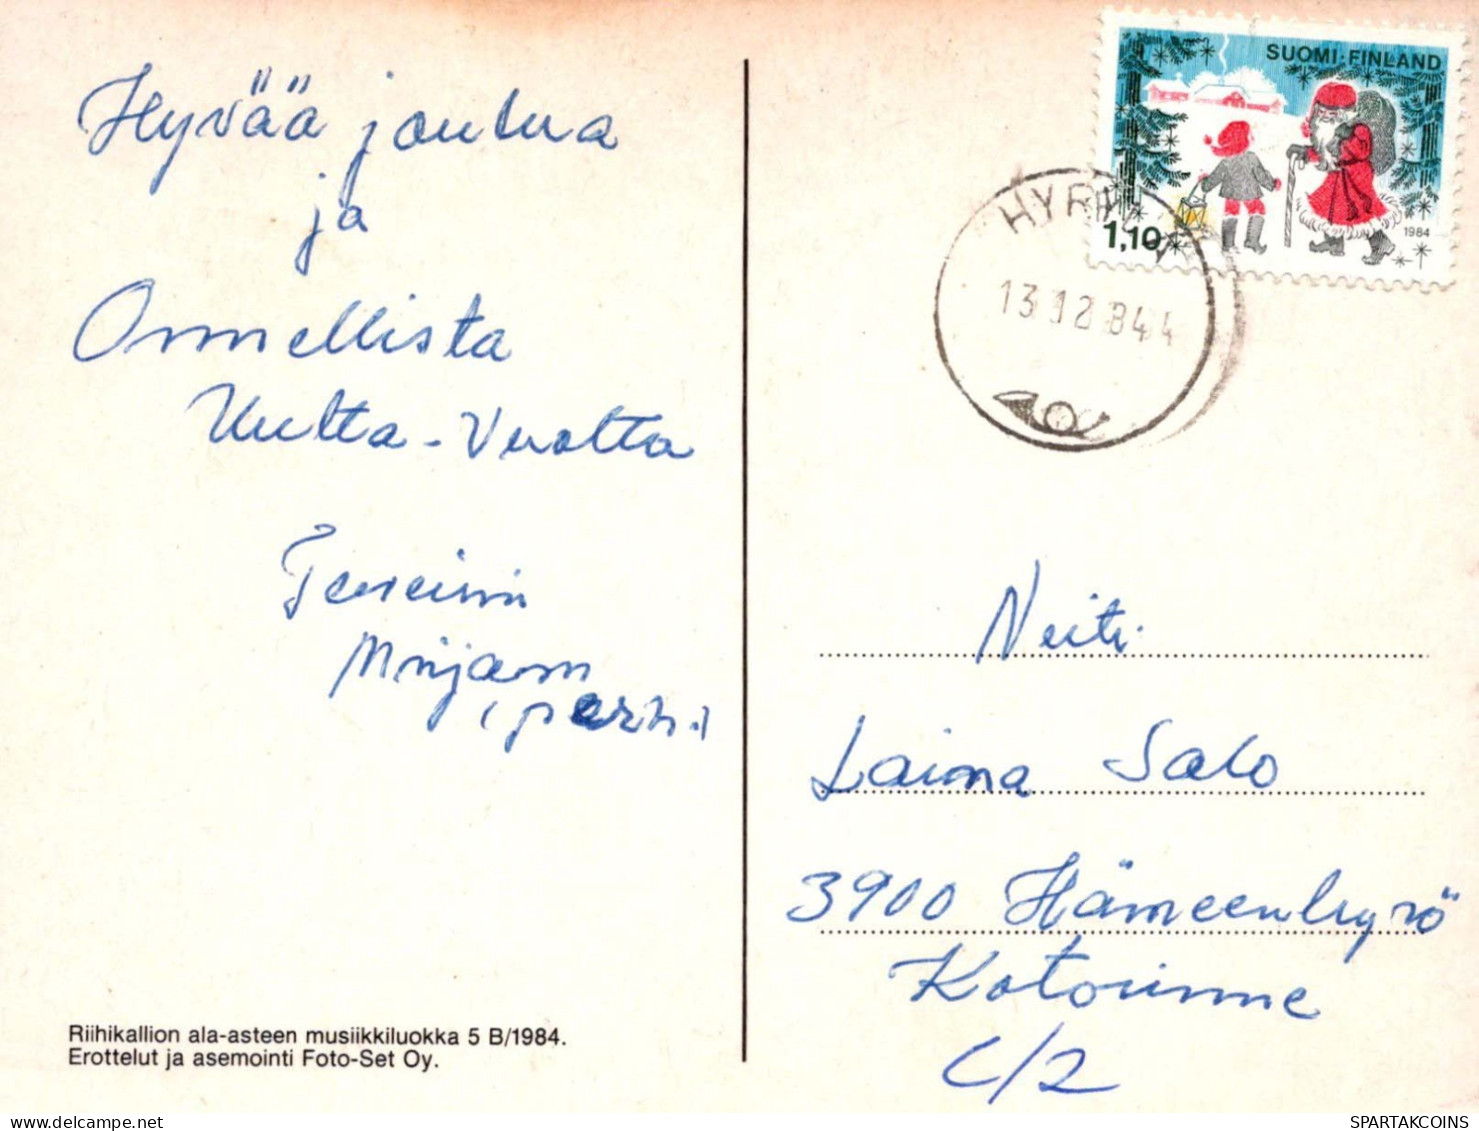 Hyvää joulua
ja
Onnellista
Uutta-Vuotta
Mirjam
Riihikallion ala-asteen musiikkiluokka 5 B/1984.
Erottelut ja asemointi Foto-Set Oy.
SUOMI·FINLAND
1984
1,10
13.12.84
Neiti
Laina Salo
3900 Hämeenkyrö
C/2
SPARTAKCOINS